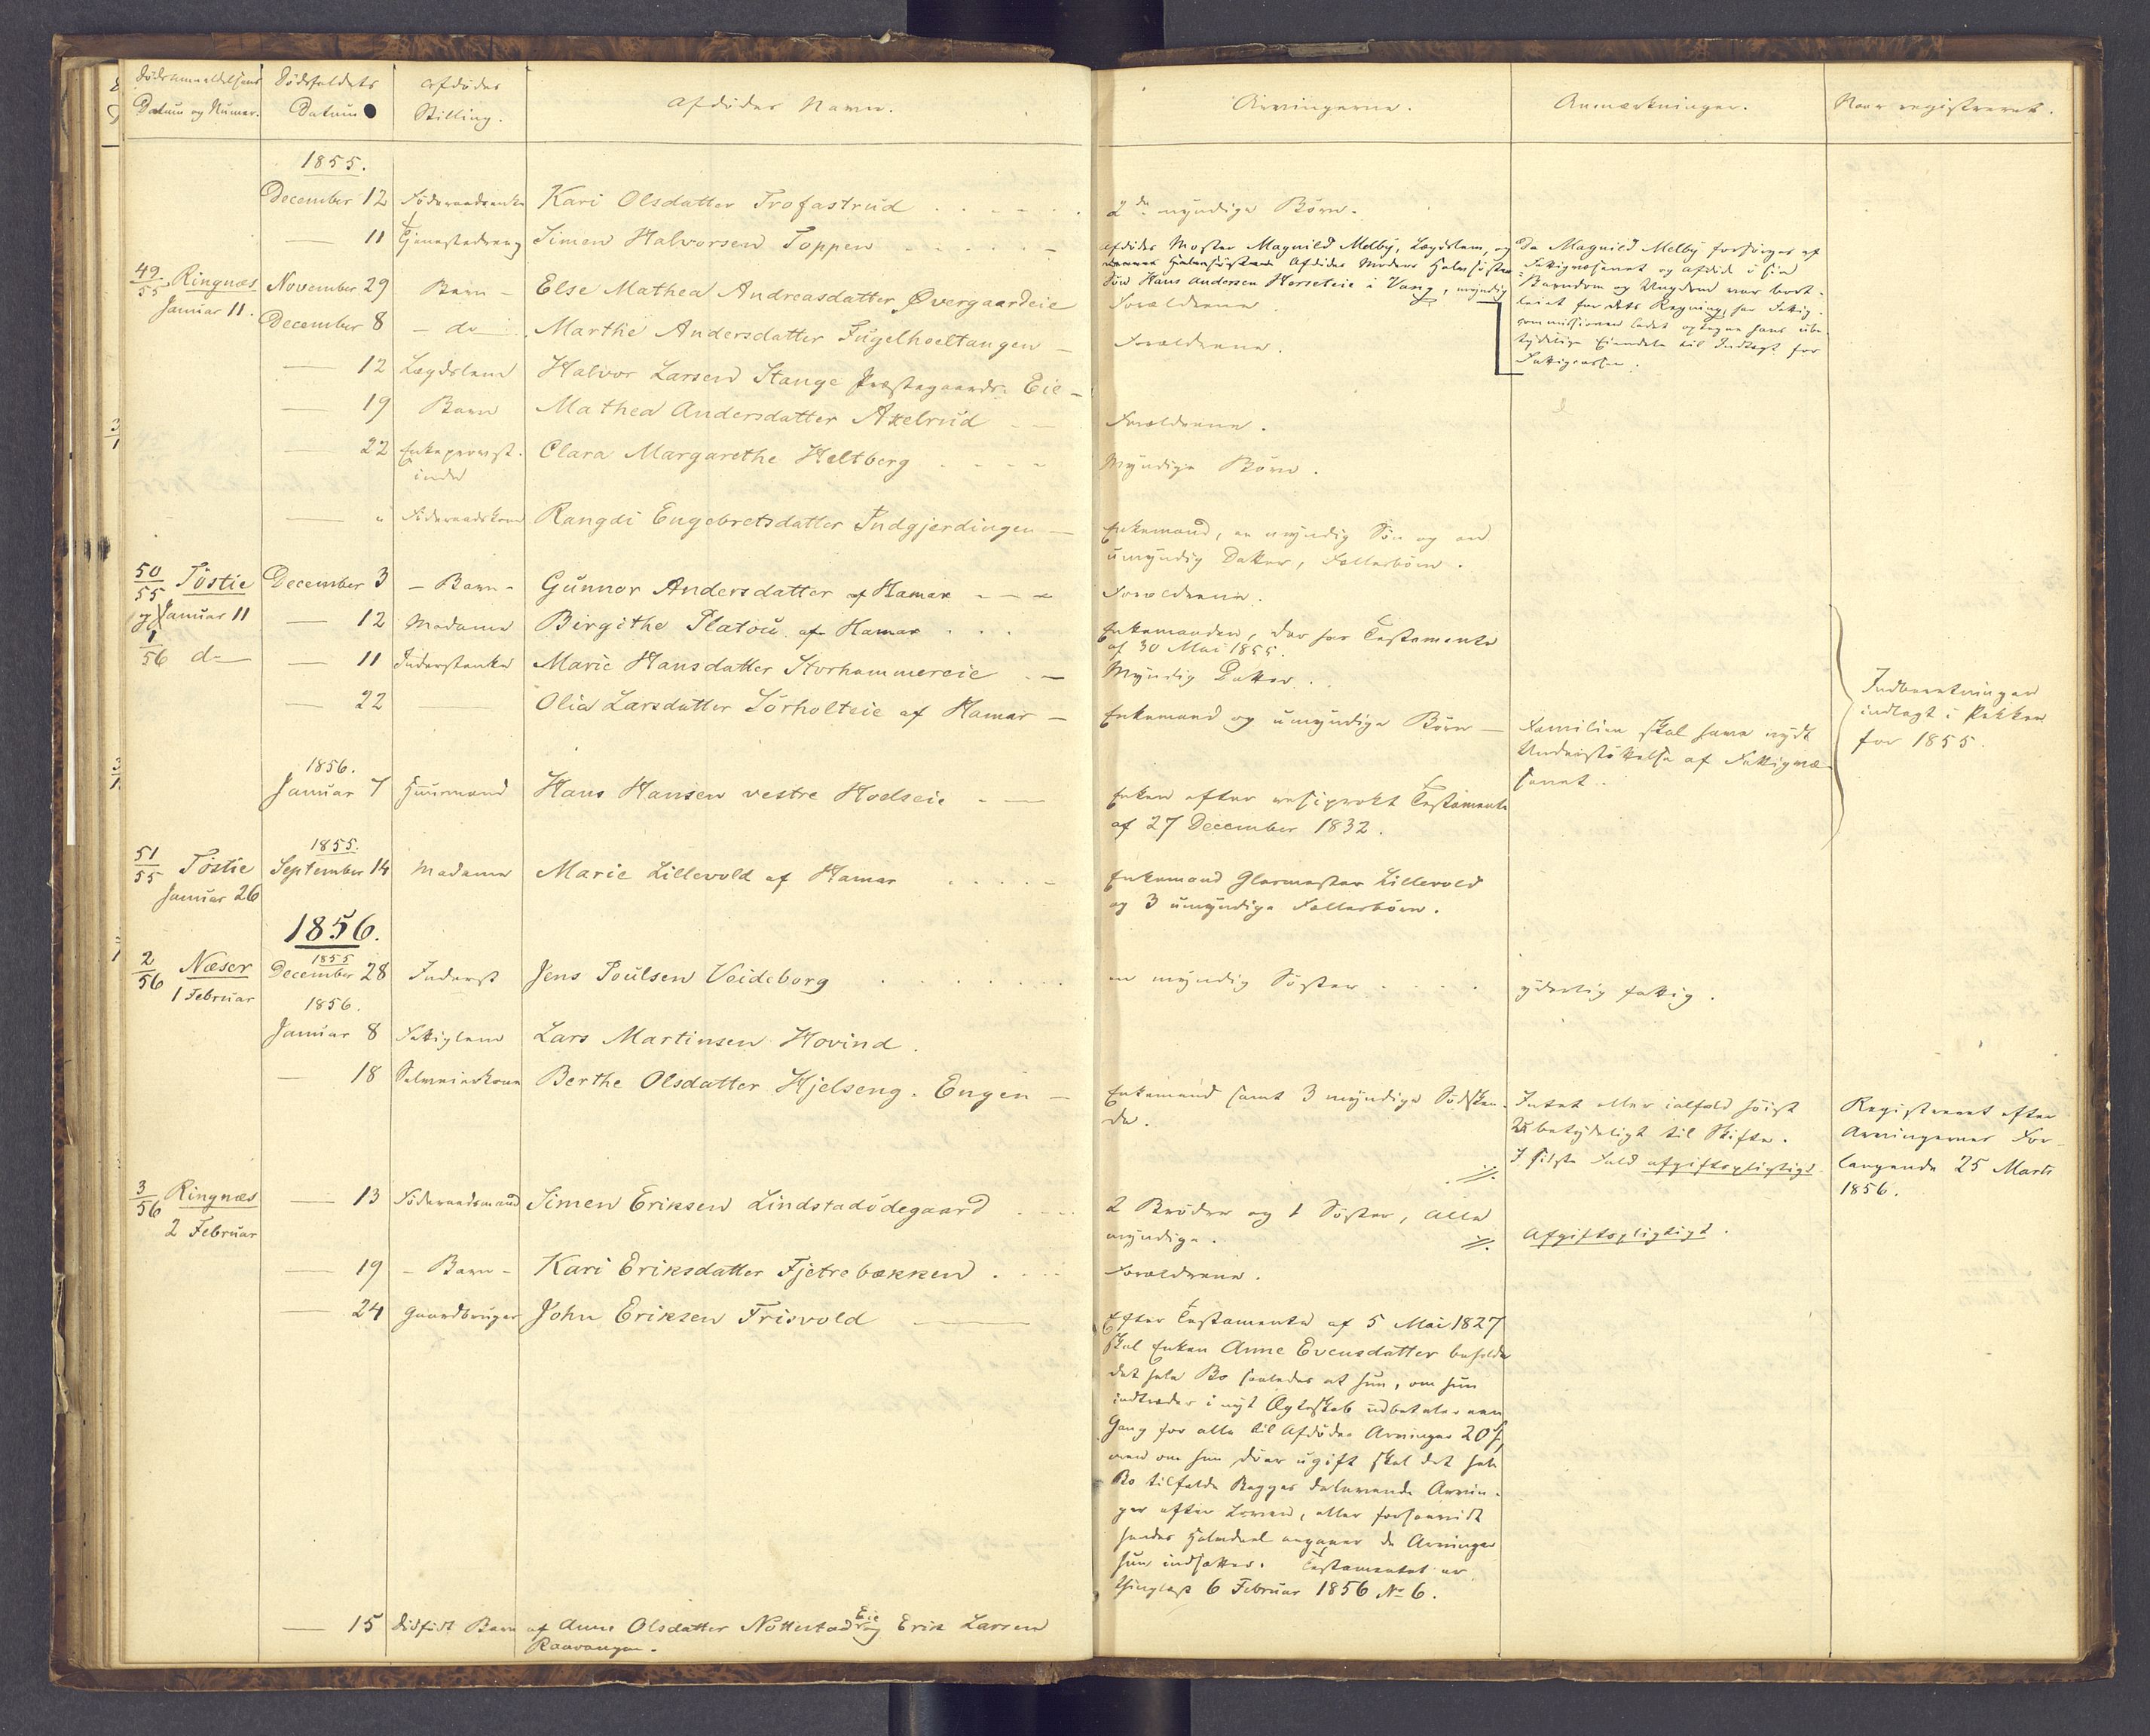 Dødsanmeldelsens Datum og Numer. Dødsfaldets Datum Afdødes Stilling. Afdødes Navn. Arvingerne. Anmærkninger. Naar registreret.
1855.
December 12 Føderaadsenke Kari Olsdatter Trofastrud 2de myndige Børn.
— 11 Tjenestedreng Simen Halvorsen Toppen
Afdødes Moster Magnild Melby, Lægdslem, og
Afdødes Moders Halvsøsters
Søn Hans Andersen Horseteie i Vang, myndig
Da Magnild Melby forsørges af
Fattigvæsenet og Afdøde i sin
Barndom og Ungdom var bort-
leiet for dets Regning, har Fattig-
commissionen ladet optegne hans ube-
tydelige Eiendele til Indtægt for
Fattigcassen.
49/55 Ringnæs November 29 Barn Else Mathea Andreasdatter Øvergaardeie Forældrene.
Januar 11. December 8 – do – Marthe Andersdatter Fugelhoeltangen Forældrene.
— 12 Lægdslem Halvor Larsen Stange Præstegaards Eie
— 19 Barn Mathea Andersdatter Axelrud Forældrene.
— 22 Enkeprovst-
inde Clara Margarethe Heltberg Myndige Børn.
— " Føderaadskone Rangdi Engebretsdatter Indgjerdingen Enkemand, en myndig Søn og en
umyndig Datter, Fællesbørn.
50/55 Tøstie December 3 – Barn – Gunnor Andersdatter af Hamar Forældrene.
og Januar 11 — 12 Madame Birgithe Platou af Hamar Enkemanden, der har Testamente
af 30 Mai 1855.
1/56 do — 11 Inderstenke Marie Hansdatter Storhammereie Myndig Datter.
— 22 — Olia Larsdatter Sørholteie af Hamar Enkemand og umyndige Børn — Familien skal have nydt
Understøttelse af Fattigvæ-
senet.
Indberetningen
indlagt i Pakken
for 1855.
1856.
Januar 7 Huusmand Hans Hansen vestre Hoelseie Enken efter resiprokt Testamente
af 27 December 1832.
1855.
51/55 Tøstie September 14 Madame Marie Lillevold af Hamar Enkemand Glarmester Lillevold
Januar 26 og 3 umyndige Fællesbørn.
1856.
1855
2/56 Næser December 28 Inderst Jens Poulsen Veideborg en myndig Søster yderlig fattig.
1 Februar
1856.
Januar 8 Fattiglem Lars Martinsen Hovind.
— 18 Selveierkone Berthe Olsdatter Hjelseng-Engen Enkemand samt 3 myndige Sødsken-
de.
Intet eller ialfald høist
ubetydeligt til Skifte.
I sidste Fald afgiftspligtigt.
Registreret efter
Arvingernes For-
langende 25 Marts
1856.
3/56 Ringnæs — 13 Føderaadsmand Simen Eriksen Lindstadødegaard 2 Brødre og 1 Søster, alle
2 Februar myndige. Afgiftspligtigt.
— 19 – Barn – Kari Eriksdatter Fjetrebækken Forældrene.
— 24 Gaardbruger John Eriksen Frisvold
Efter Testamente af 5 Mai 1827
skal Enken Anne Evensdatter beholde
det hele Bo saaledes at hun, om hun
indtræder i nyt Ægteskab udbetaler een
Gang for alle til Afdødes Arvinger 20 
men om hun døer ugift skal det hele
Bo tilfalde Begges dalevende Arvin-
ger efter Loven, eller forsaavidt
hendes Halvdeel angaaer de Arvinger
hun indsætter. Testamentet er
thinglæst 6 Februar 1856 No 6.
— 15 dødfødt Barn af Anne Olsdatter Nottestad Eie og Erik Larsen
Raavangen.